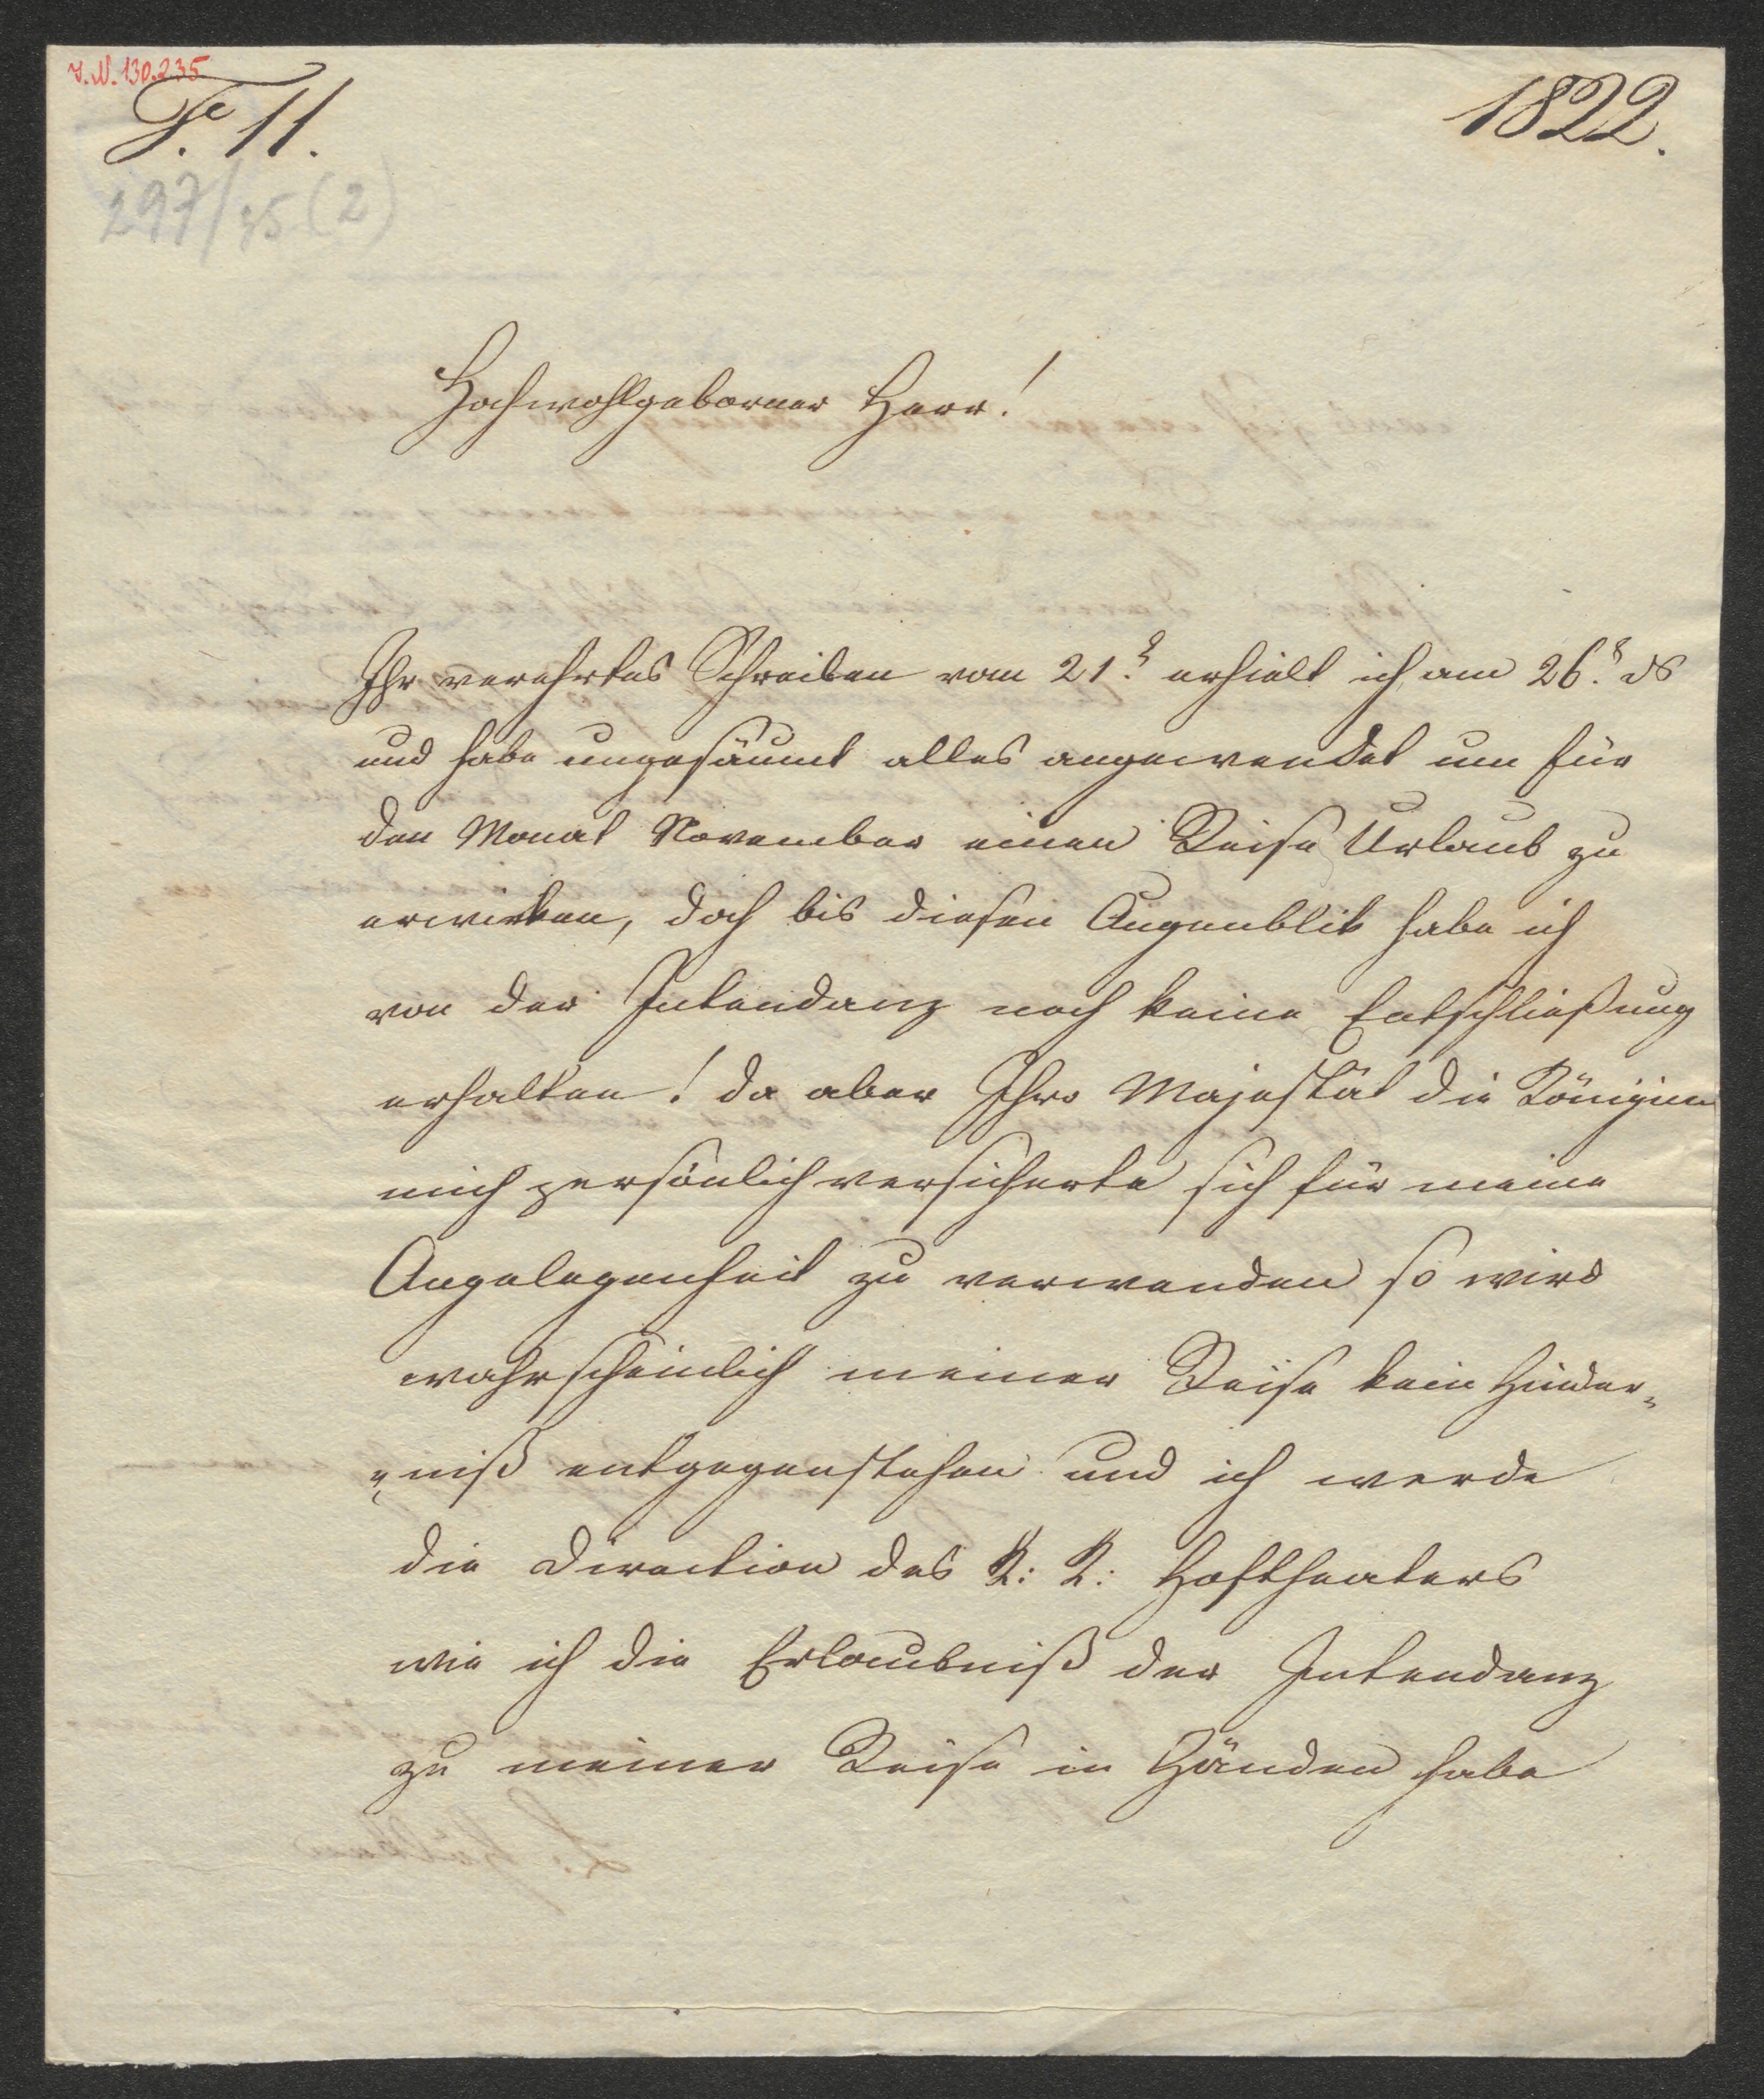 I.N. 130.235
Fc. 11.
1822.
297/35 (2)
Hochwohlgeborner Herr!
Ihr verehrtes Schreiben vom 21.t erhielt ich am 26.t ds
und habe ungesäumt alles angewendet um für
den Monat November einen Reise Urlaub zu
erwirken, doch bis diesen Augenblik habe ich
von der Intendanz noch keine Entschließung
erhalten! da aber Ihro Majestät die Königinn
mich persönlich versicherte sich für meine
Angelegenheit zu verwenden so wird
wahrscheinlich meiner Reise kein Hinder„
„niß entgegenstehen und ich werde
die Direction des K: K: Hoftheaters
wie ich die Erlaubniß der Intendanz
zu meiner Reise in Händen habe